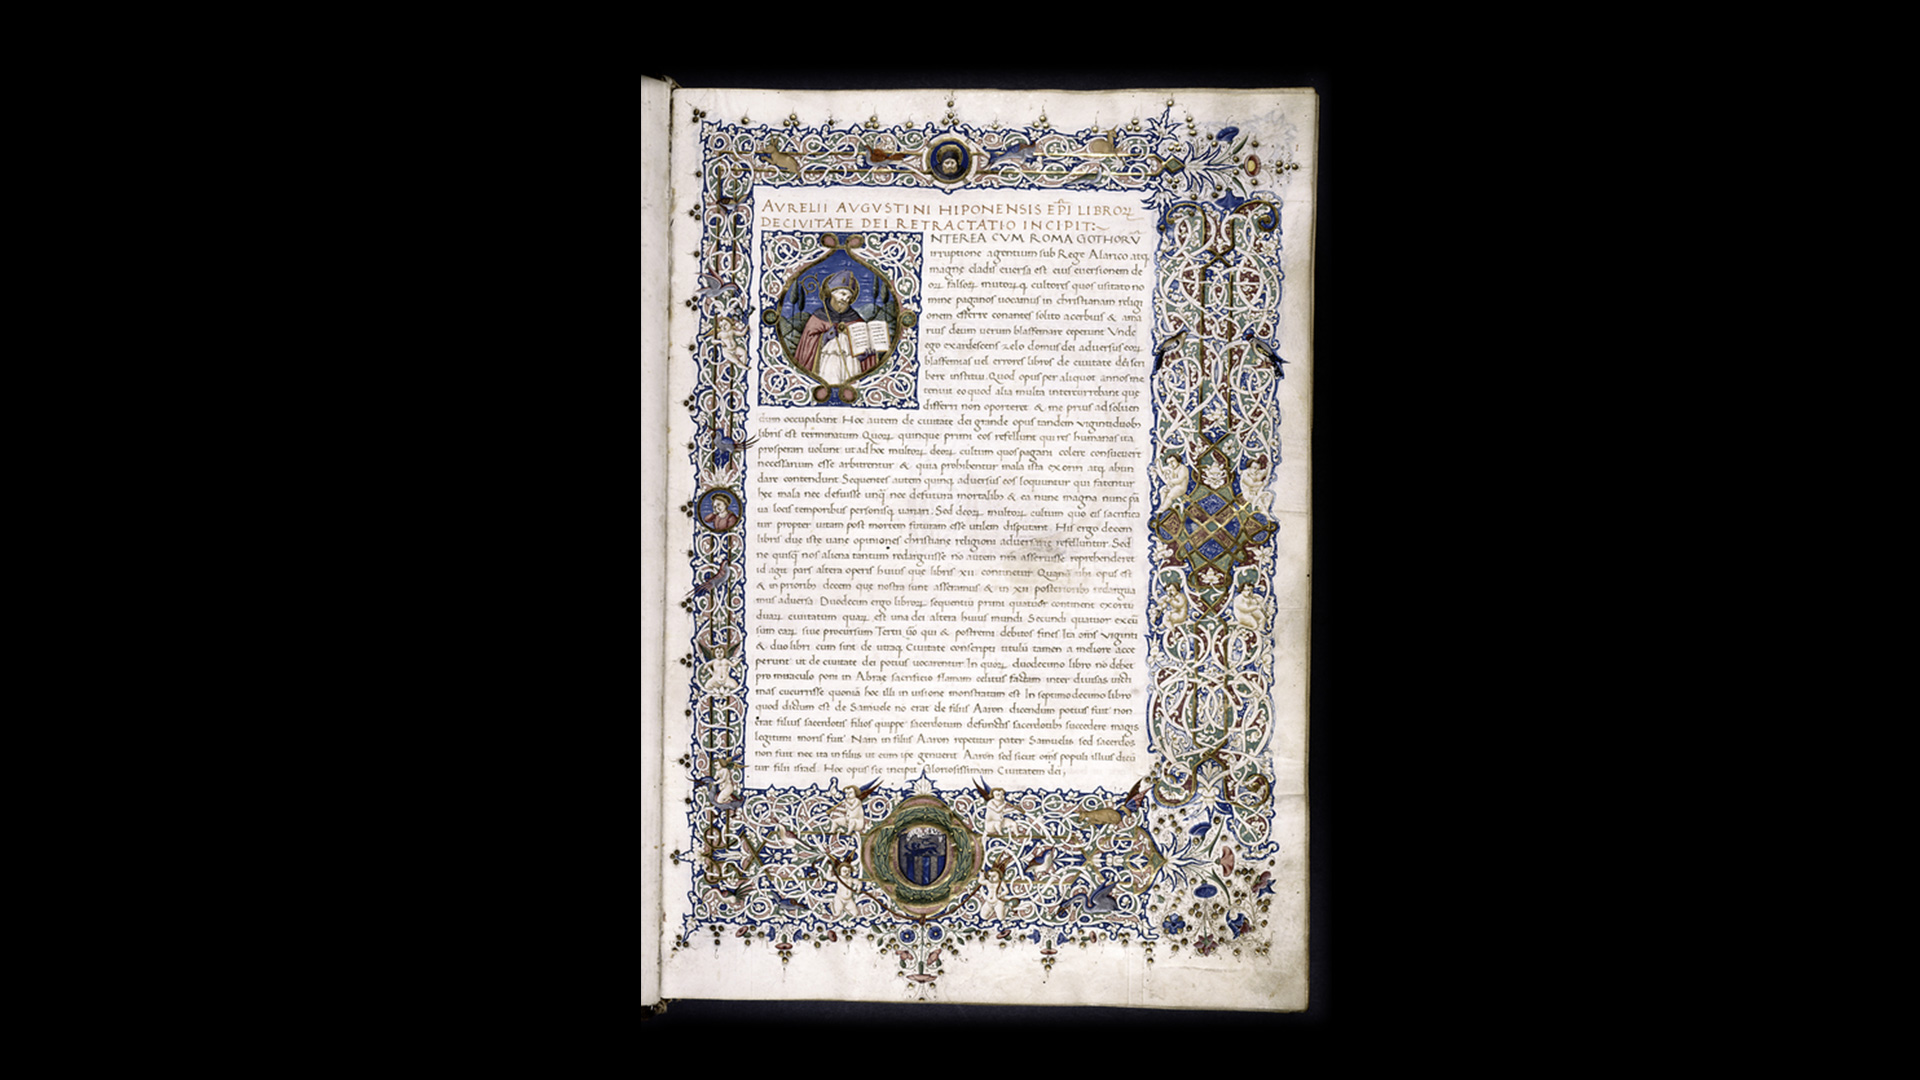 AVRELII AVGVSTINI HIPONENSIS EPI LIBROꝜ
DE CIVITATE DEI RETRACTATIO INCIPIT:~
NTEREA CVM ROMA GOTHORŪ
irruptione agentium sub Rege Alarico atq
magnę cladis euersa est eius euersionem de
oꝝ falsoꝝ multoꝝq cultores quos usitato no
mine paganos uocamus in christianam religi
onem efferre conantes solito acerbius & ama
rius deum uerum blasfemare ceperunt Vnde
ego exardescens zelo domus dei aduersus eoꝝ
blasfemias uel errores libros de ciuitate dei scri
bere institui. Quod opus per aliquot annos me
tenuit eo quod alia multa intercurrebant que
differri non oporteret & me prius ad soluen
dum occupabant. Hoc autem de ciuitate dei grande opus tandem uigintiduob
libris est terminatum Quoꝝ quinque primi eos refellunt qui res humanas ita
prosperari uolunt ut ad hoc multoꝝ deoꝝ cultum quos pagani colere consueuert
necessarium esse arbitrentur & quia prohibentur mala ista exoriri atq abun
dare contendunt Sequentes autem quinq aduersus eos loquuntur qui fatentur
hec mala nec defuisse unq nec defutura mortalib & ea nunc magna nunc pa
ua locis temporibus personisq uariari: Sed deoꝝ multoꝝ cultum quo eis sacrifica
tur propter uitam post mortem futuram esse utilem disputant. His ergo decem
libris due iste uane opiniones christiane religioni aduersarie refelluntur Sed
ne quisq nos aliena tantum redarguisse no autem nra asseruisse reprehenderet
id agit pars altera operis huius que libris xii continetur Quanq ubi opus est
& in priorib decem que nostra sunt asseramus & in xii posteriorib redargua
mus aduersa. Duodecim ergo libroꝝ sequentiu primi quatuor continent exortu
duaꝝ ciuitatum quaꝝ est una dei altera huius mundi Secundi quatuor excu
sum eaꝝ siue procursum Tertii uo qui & postremi debitos fines Ita oms uiginti
& duo libri cum sint de utraq Ciuitate conscripti titulu tamen a meliore acce
perunt ut de ciuitate dei potius uocarentur In quoꝝ duodecimo libro no debet
pro miraculo poni in Abrae sacrificio flamam celitus factam inter diuisas uicti
mas cucurrisse quonia hoc illi in uisione monstratum est In septimodecimo libro
quod dictum est de Samuele no erat de filiis Aaron dicendum potius fuit non
erat filius sacerdotis filios quippe sacerdotum defunctis sacerdotib succedere magis
legitimi moris fuit Nam in filiis Aaron repetitur pater Samuelis sed sacerdos
non fuit nec ita in filiis ut eum ipe genuerit Aaron sed sicut oms populi illius dicu
tur filii israel. Hoc opus sic incipit Gloriosissimam Ciuitatem dei,